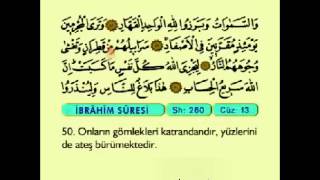 وَالسَّمٰوَاتُ وَبَرَزُوا لِلّٰهِ الْوَاحِدِ الْقَهَّارِ وَتَرَى الْمُجْرِمِينَ
يَوْمَئِذٍ مُقَرَّنِينَ فِي الْاَصْفَادِ سَرَابِيلُهُمْ مِنْ قَطِرَانٍ وَتَغْشٰى
وُجُوهَهُمُ النَّارُ لِيَجْزِيَ اللّٰهُ كُلَّ نَفْسٍ مَا كَسَبَتْ اِنَّ
اللّٰهَ سَرِيعُ الْحِسَابِ هٰذَا بَلَاغٌ لِلنَّاسِ وَلِيُنْذَرُوا
İBRAHİM SÛRESİ Sh: 260 Cüz: 13
50. Onların gömlekleri katrandandır, yüzlerini
de ateş bürümektedir.